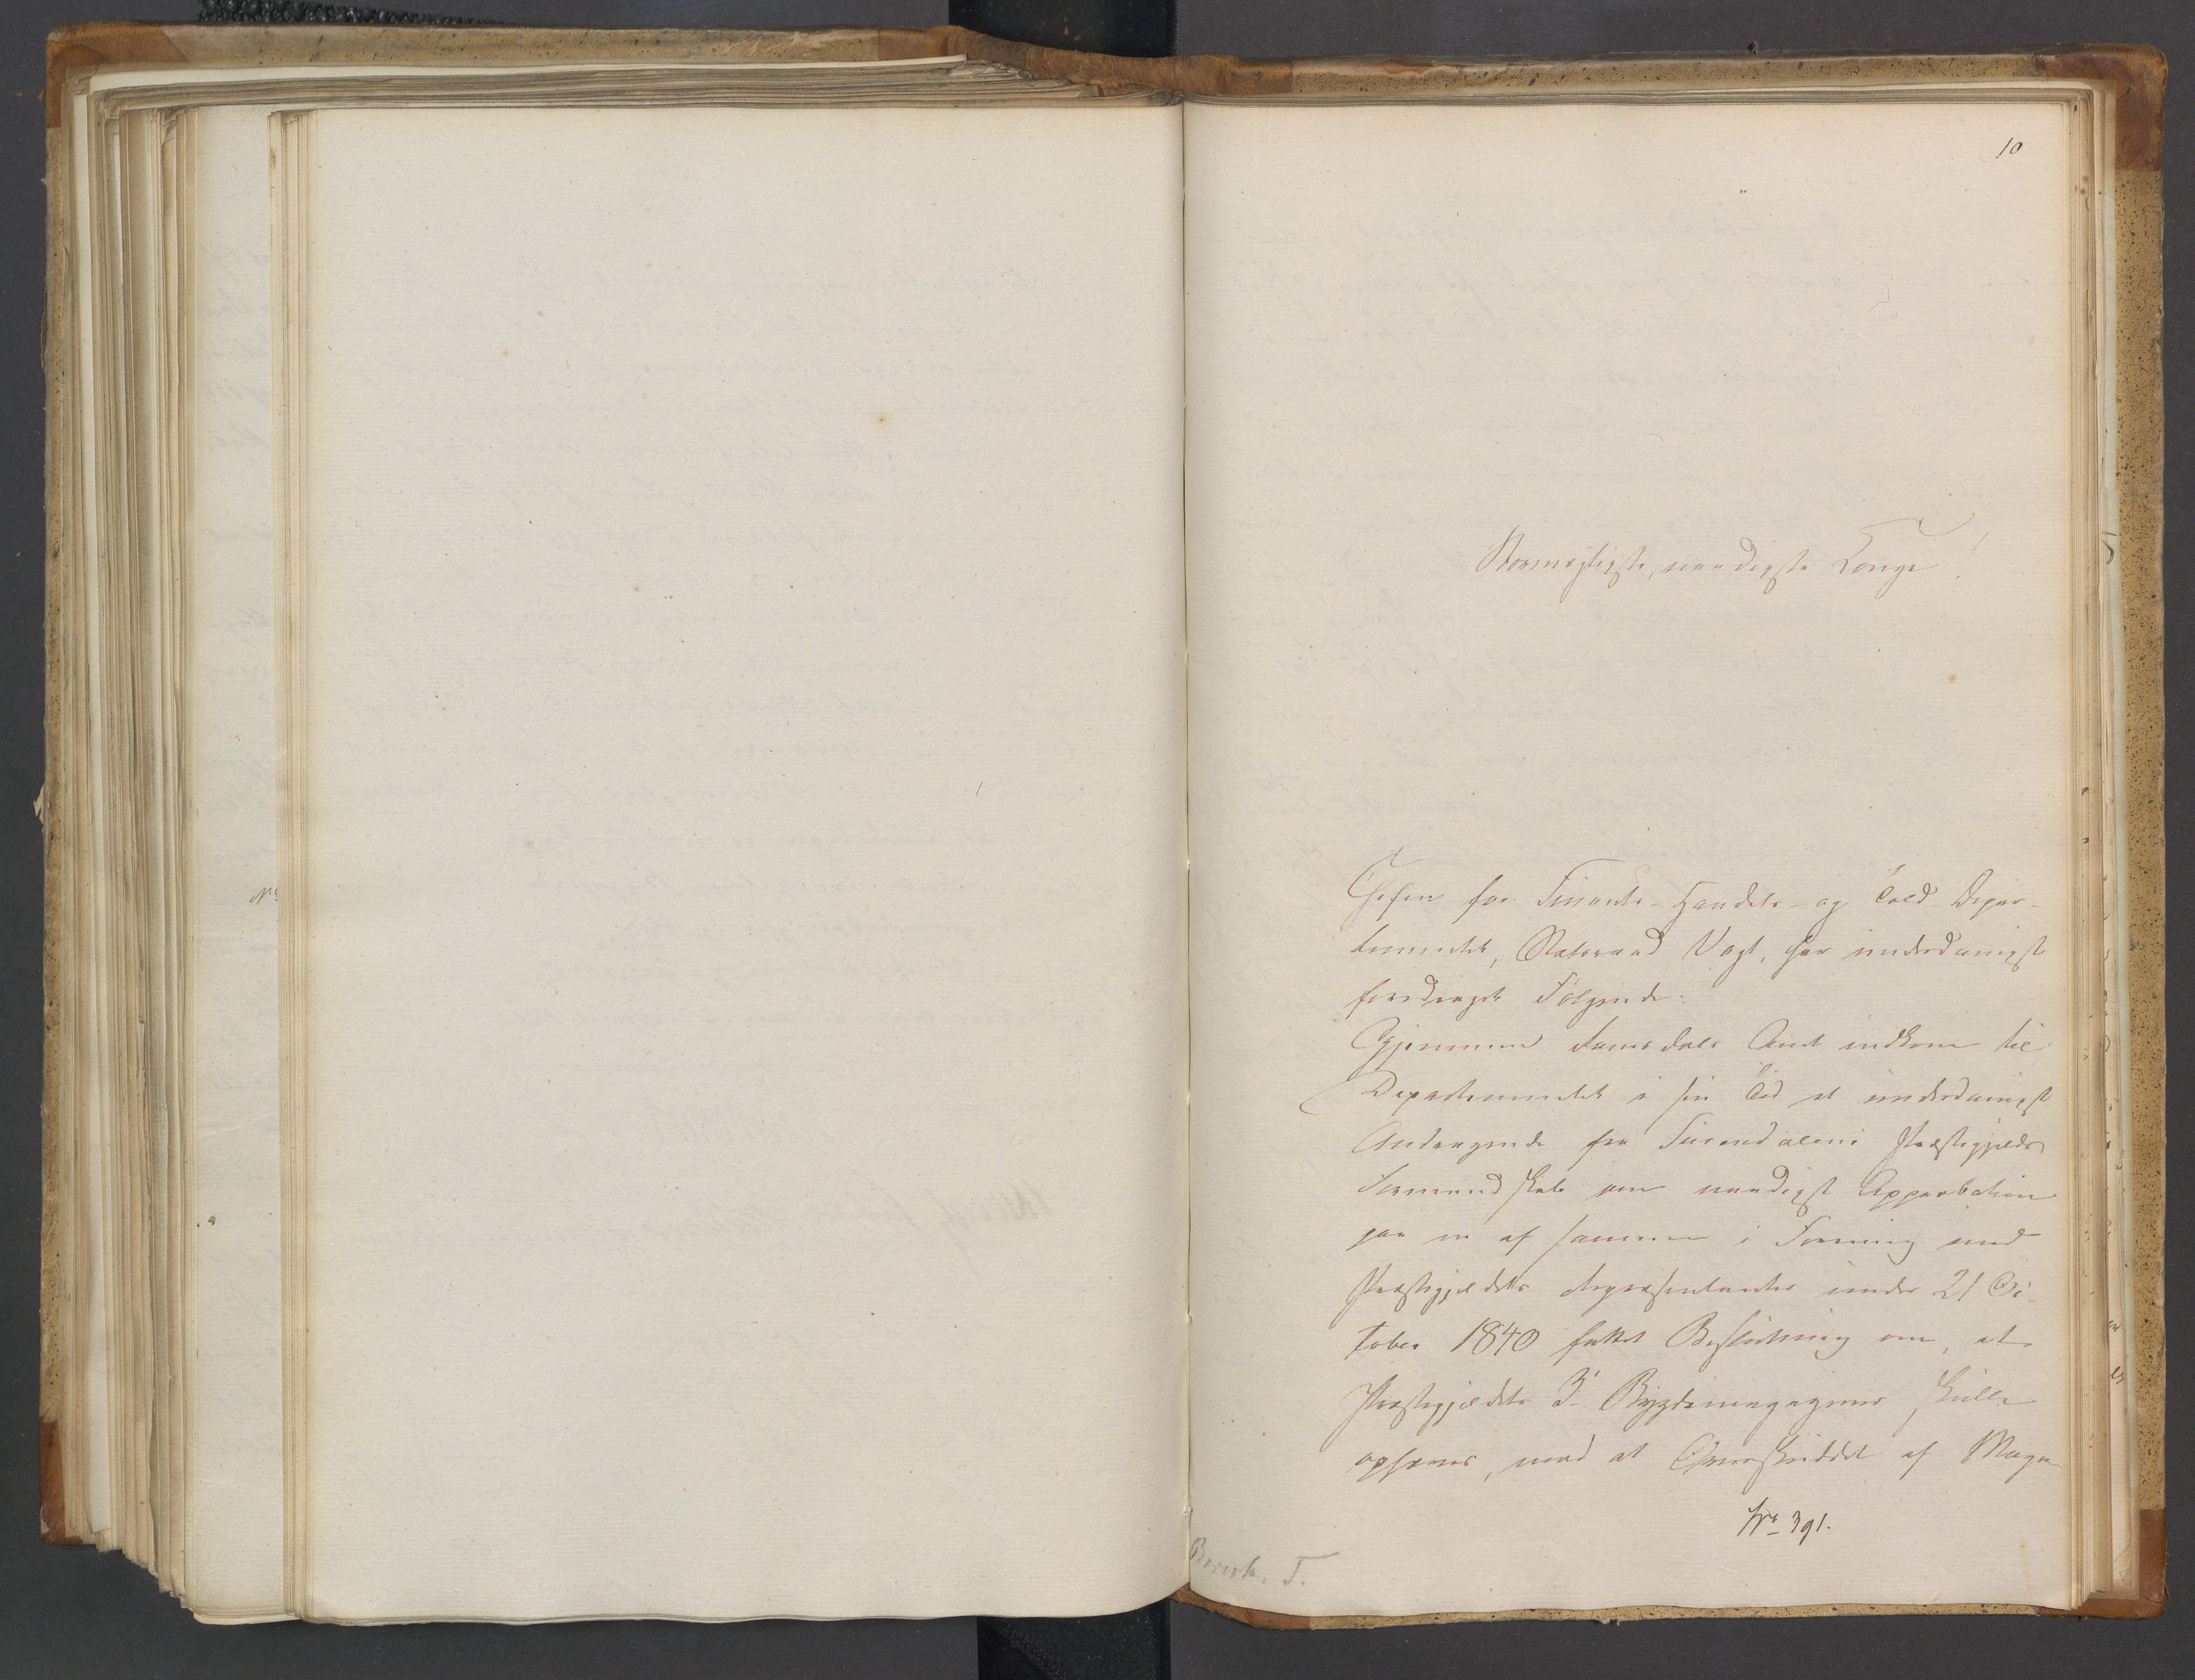 10
Stormægtigste, naadigste Konge!
Chefen for Finants- Handels- og Told-Depar-
tementet, Statsraad Vogt, har underdanigst
foredraget Følgende:
Gjennem Romsdals Amt indkom til
Departementet i sin Tid et underdanigst
Andragende fra Surendalens Præstegjelds
Formandskab om naadigst Approbation
paa en af samme i Forening med
Præstegjeldets Repræsentanter under 21 Oc-
tober 1840 fattet Beslutning om, at
Præstegjeldets 3 Bygdemagaziner skulle
ophæves, mod at Overskuddet af Maga-
No 391.
Nº